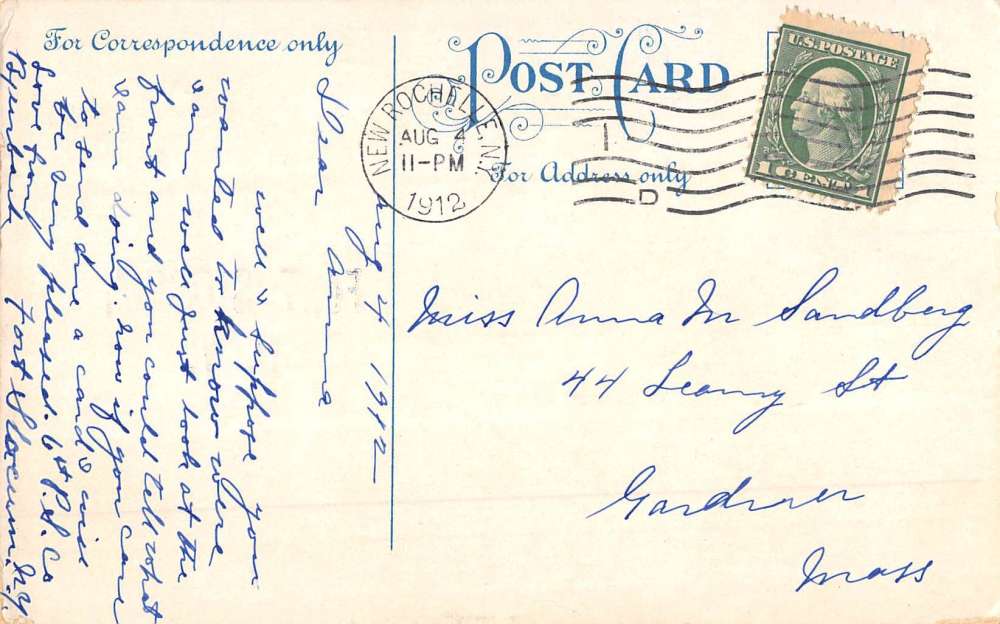 For Correspondence only
POST CARD
For Address only
U.S. POSTAGE
1 CENT 1
NEW ROCHELLE N.Y.
AUG 4
11-PM
1912
D
Aug 4 1912
Dear Anna
well I suppose you
wanted to know where
I am well just look at the
front and you could tell what
I am doing. now if you care
to send me a card I will
be very pleased.
Love from
6th P.S. Co
Fort Slocum. N.Y.
Miss Anna M Sandberg
44 Leamy St
Gardner
Mass